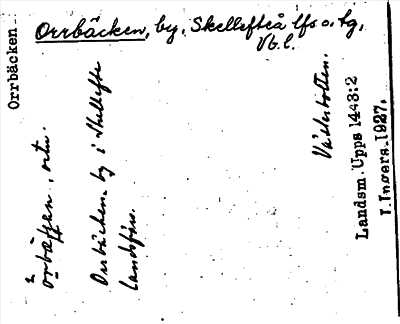 Orrbäcken
Orrbäcken, by, Skellefteå lfs o. tg,
Vb. l.
örbäkken, ortn.
Orrbäcken by i Skellefte
Landsförs.
Västerbotten.
Landsm. Upps 1443:2